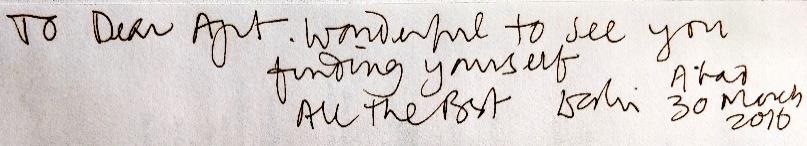 To Dear Ajit. Wonderful to see you
finding yourself
All The Best
30 March
2016